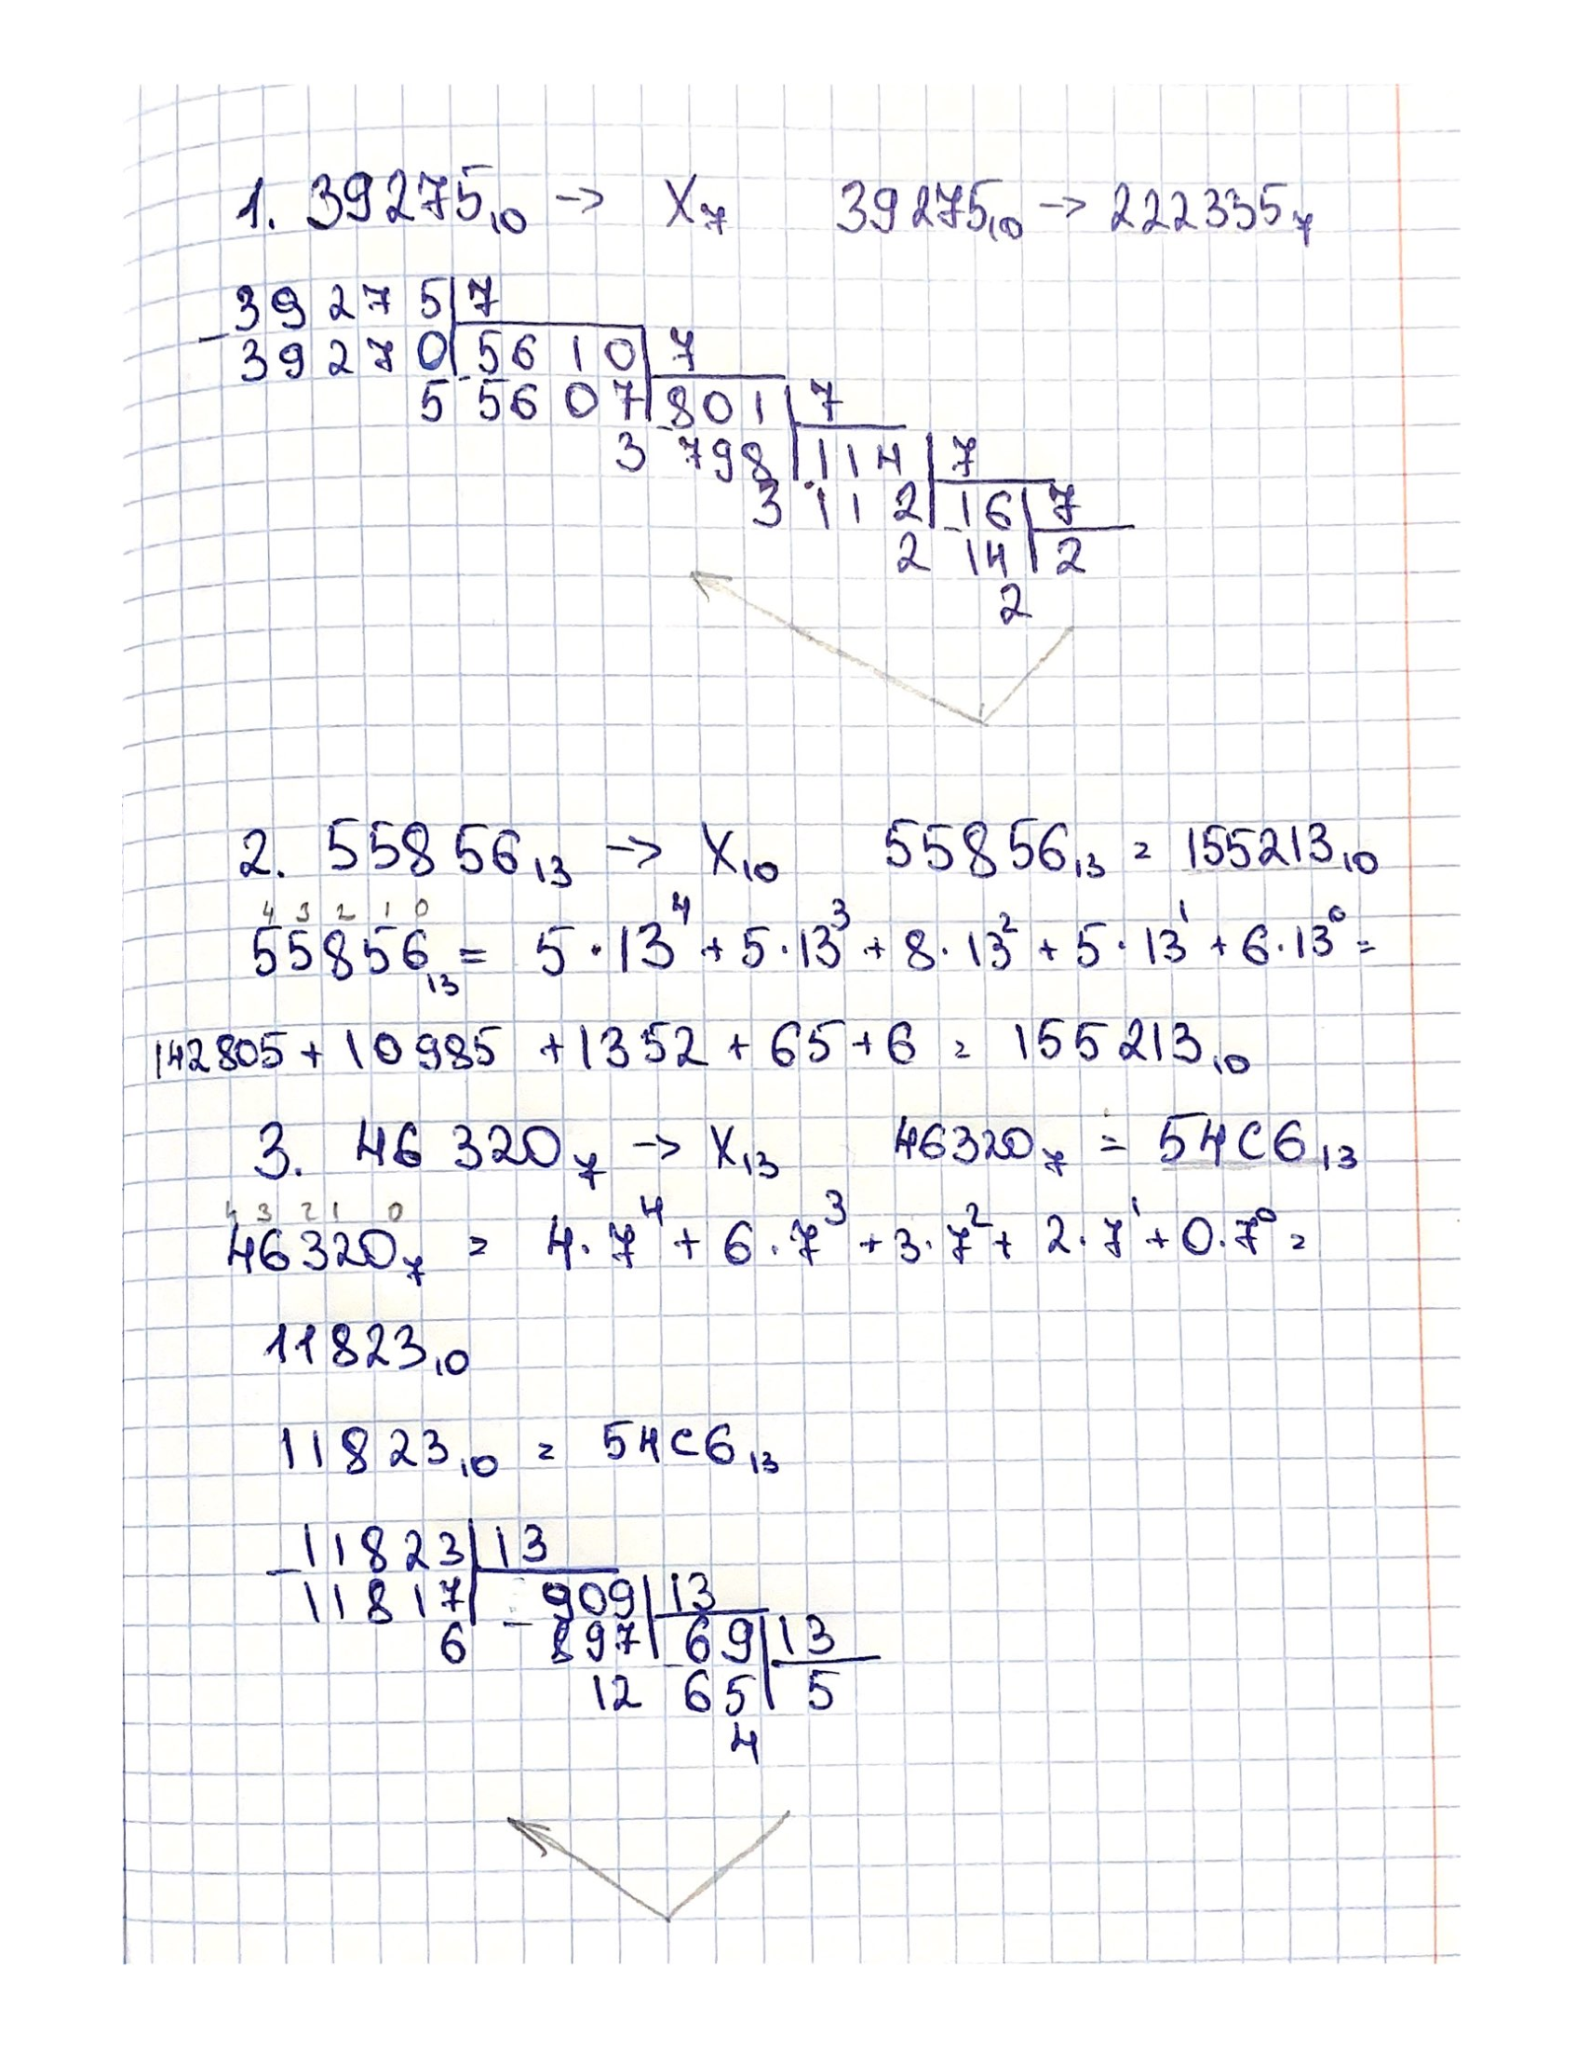 1. 39275₁₀ → X₇ 39275₁₀ → 222335₇
39275 | 7
-39270 | 5610 | 7
5 - 5607 | 801 | 7
3 - 798 | 114 | 7
3 - 112 | 16 | 7
2 - 14 | 2
2
2. 55856₁₃ → X₁₀ 55856₁₃ = 155213₁₀
4 3 2 1 0
55856₁₃ = 5·13⁴ + 5·13³ + 8·13² + 5·13¹ + 6·13⁰ =
142805 + 10985 + 1352 + 65 + 6 = 155213₁₀
3. 46320₇ → X₁₃ 46320₇ = 54C6₁₃
4 3 2 1 0
46320₇ = 4·7⁴ + 6·7³ + 3·7² + 2·7¹ + 0·7⁰ =
11823₁₀
11823₁₀ = 54C6₁₃
-11823 | 13
11817 | 909 | 13
6 - 897 | 69 | 13
12 - 65 | 5
4